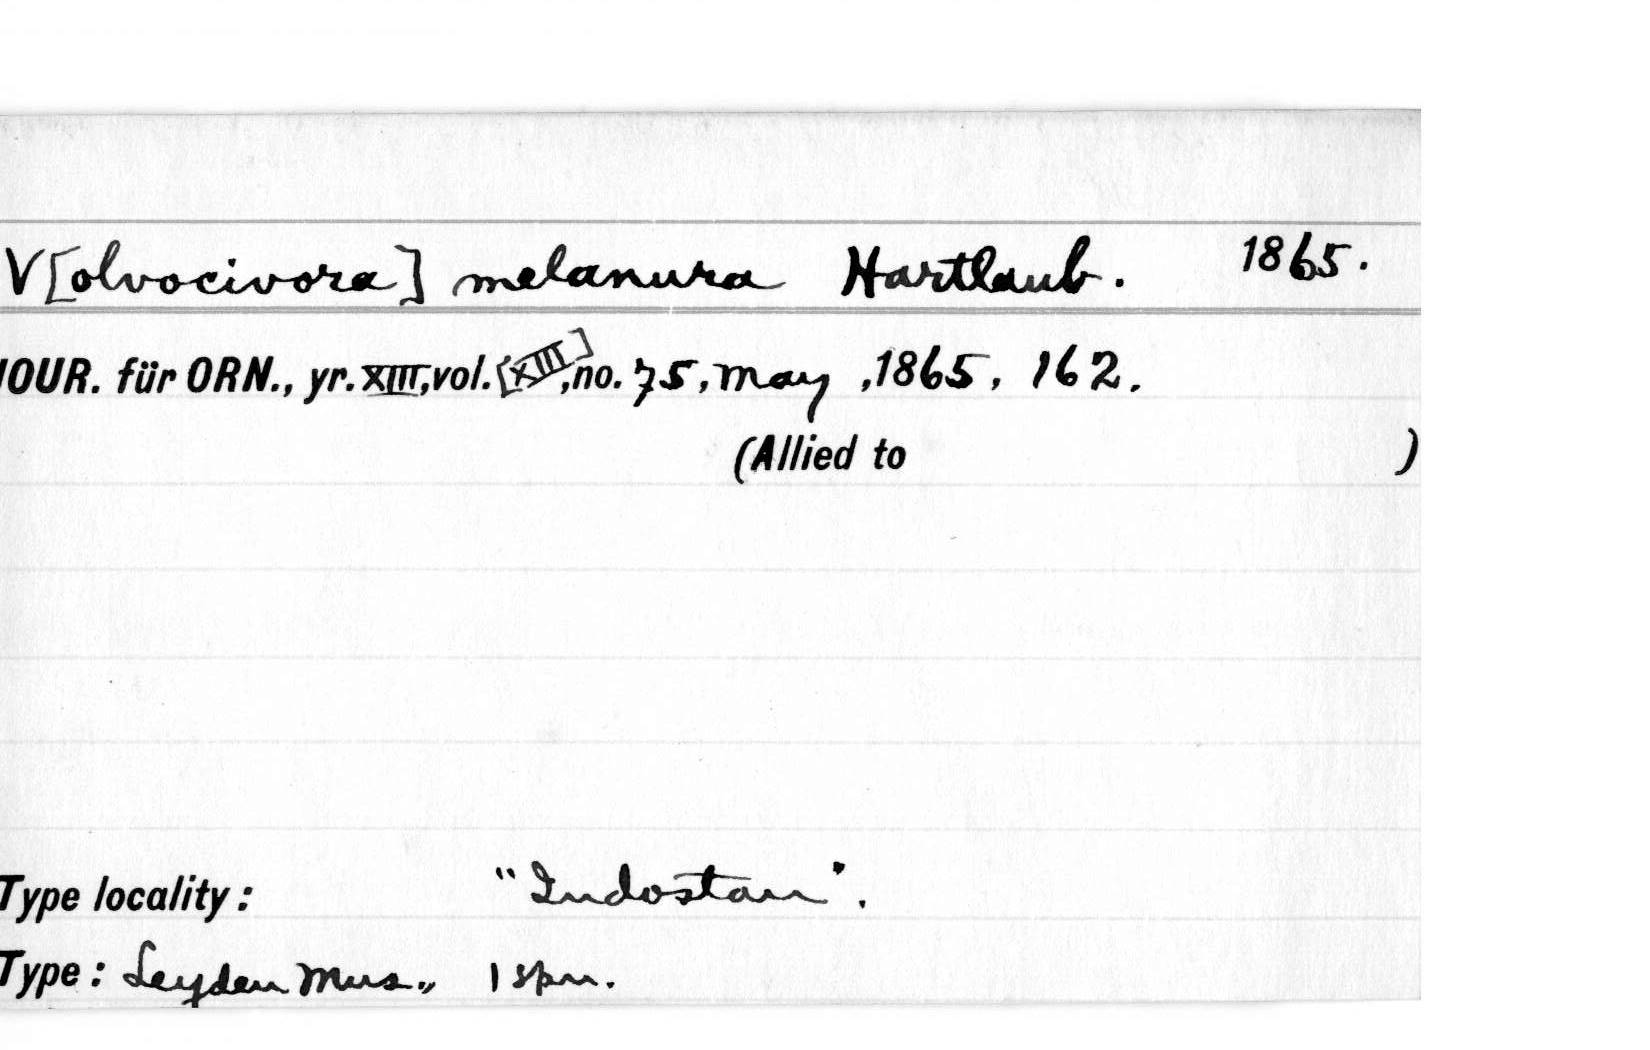 V[olvocivora] melanura Hartlaub. 1865.
JOUR. für ORN., yr. XIII, vol. [XIII], no. 75, May, 1865, 162.
(Allied to )
Type locality: "Indostan".
Type: Leyden Mus., 1 spm.